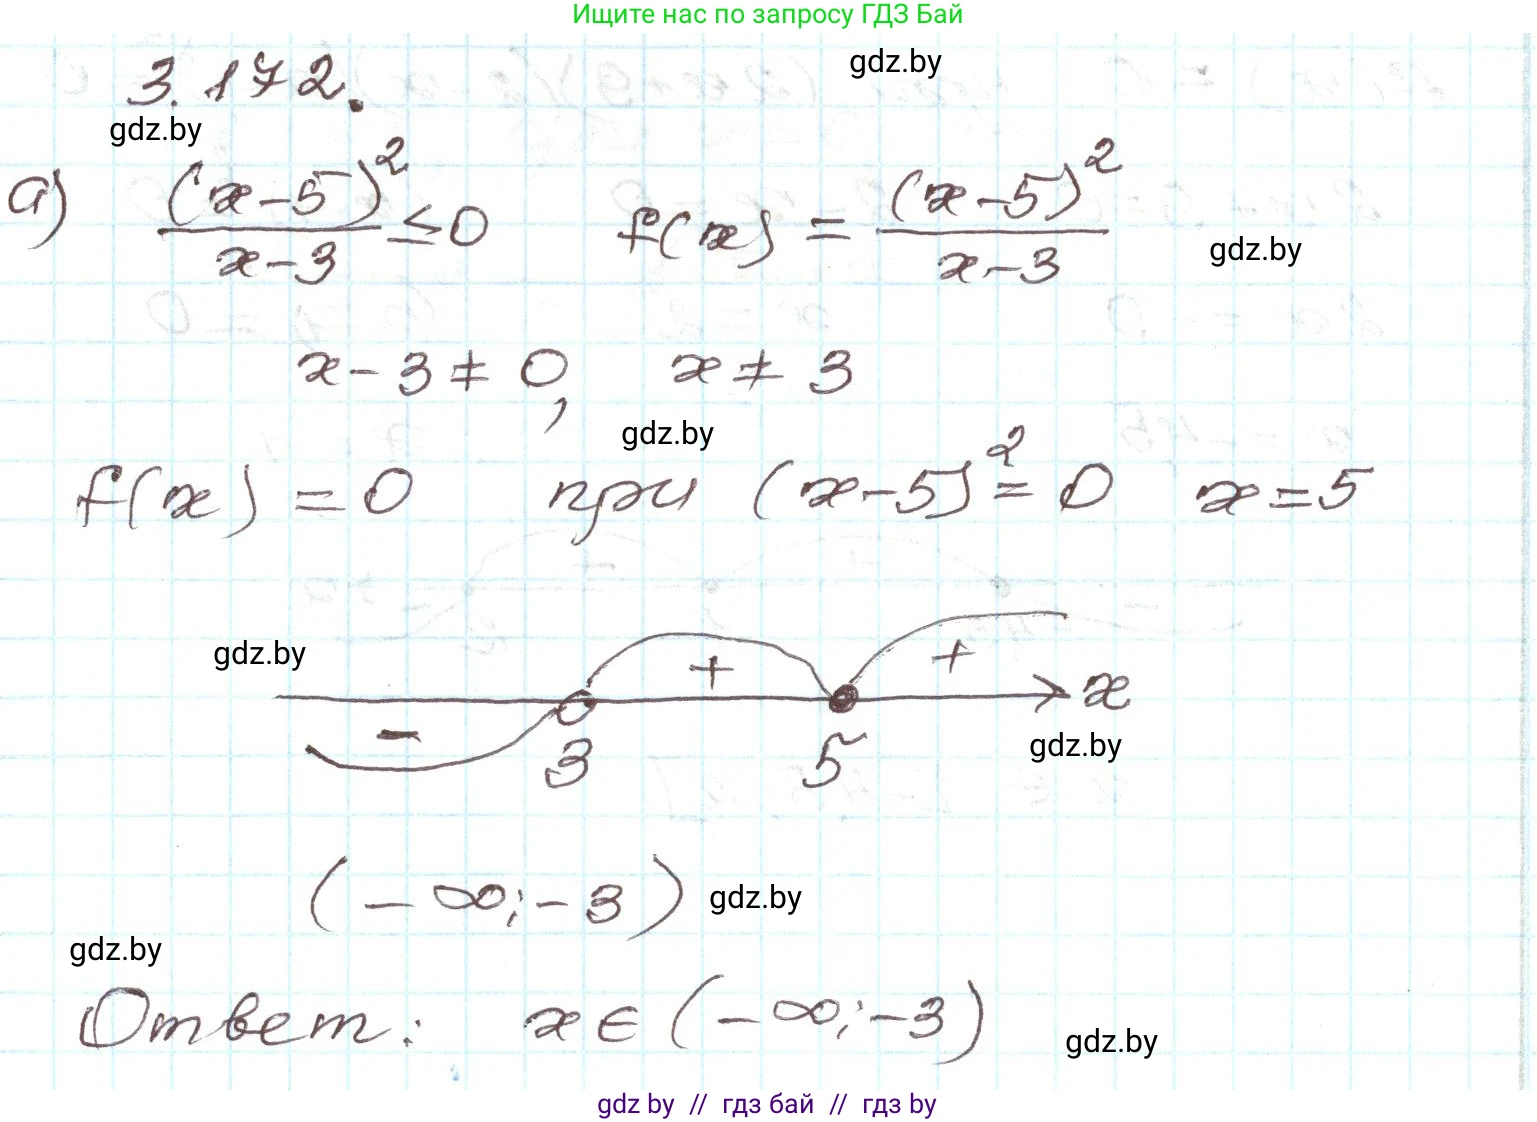 Ищите нас по запросу ГДЗ Бай
3.172.
gdz.by
gdz.by
а) (x-5)²/(x-3) ≤ 0 f(x) = (x-5)²/(x-3)
gdz.by
x-3≠0, x≠3
gdz.by
f(x)=0 при (x-5)²=0 x=5
gdz.by
- + + x
3 5
gdz.by
(-∞;-3)
gdz.by
gdz.by
Ответ: x∈(-∞;-3)
gdz.by
gdz by // гдз бай // гдз by